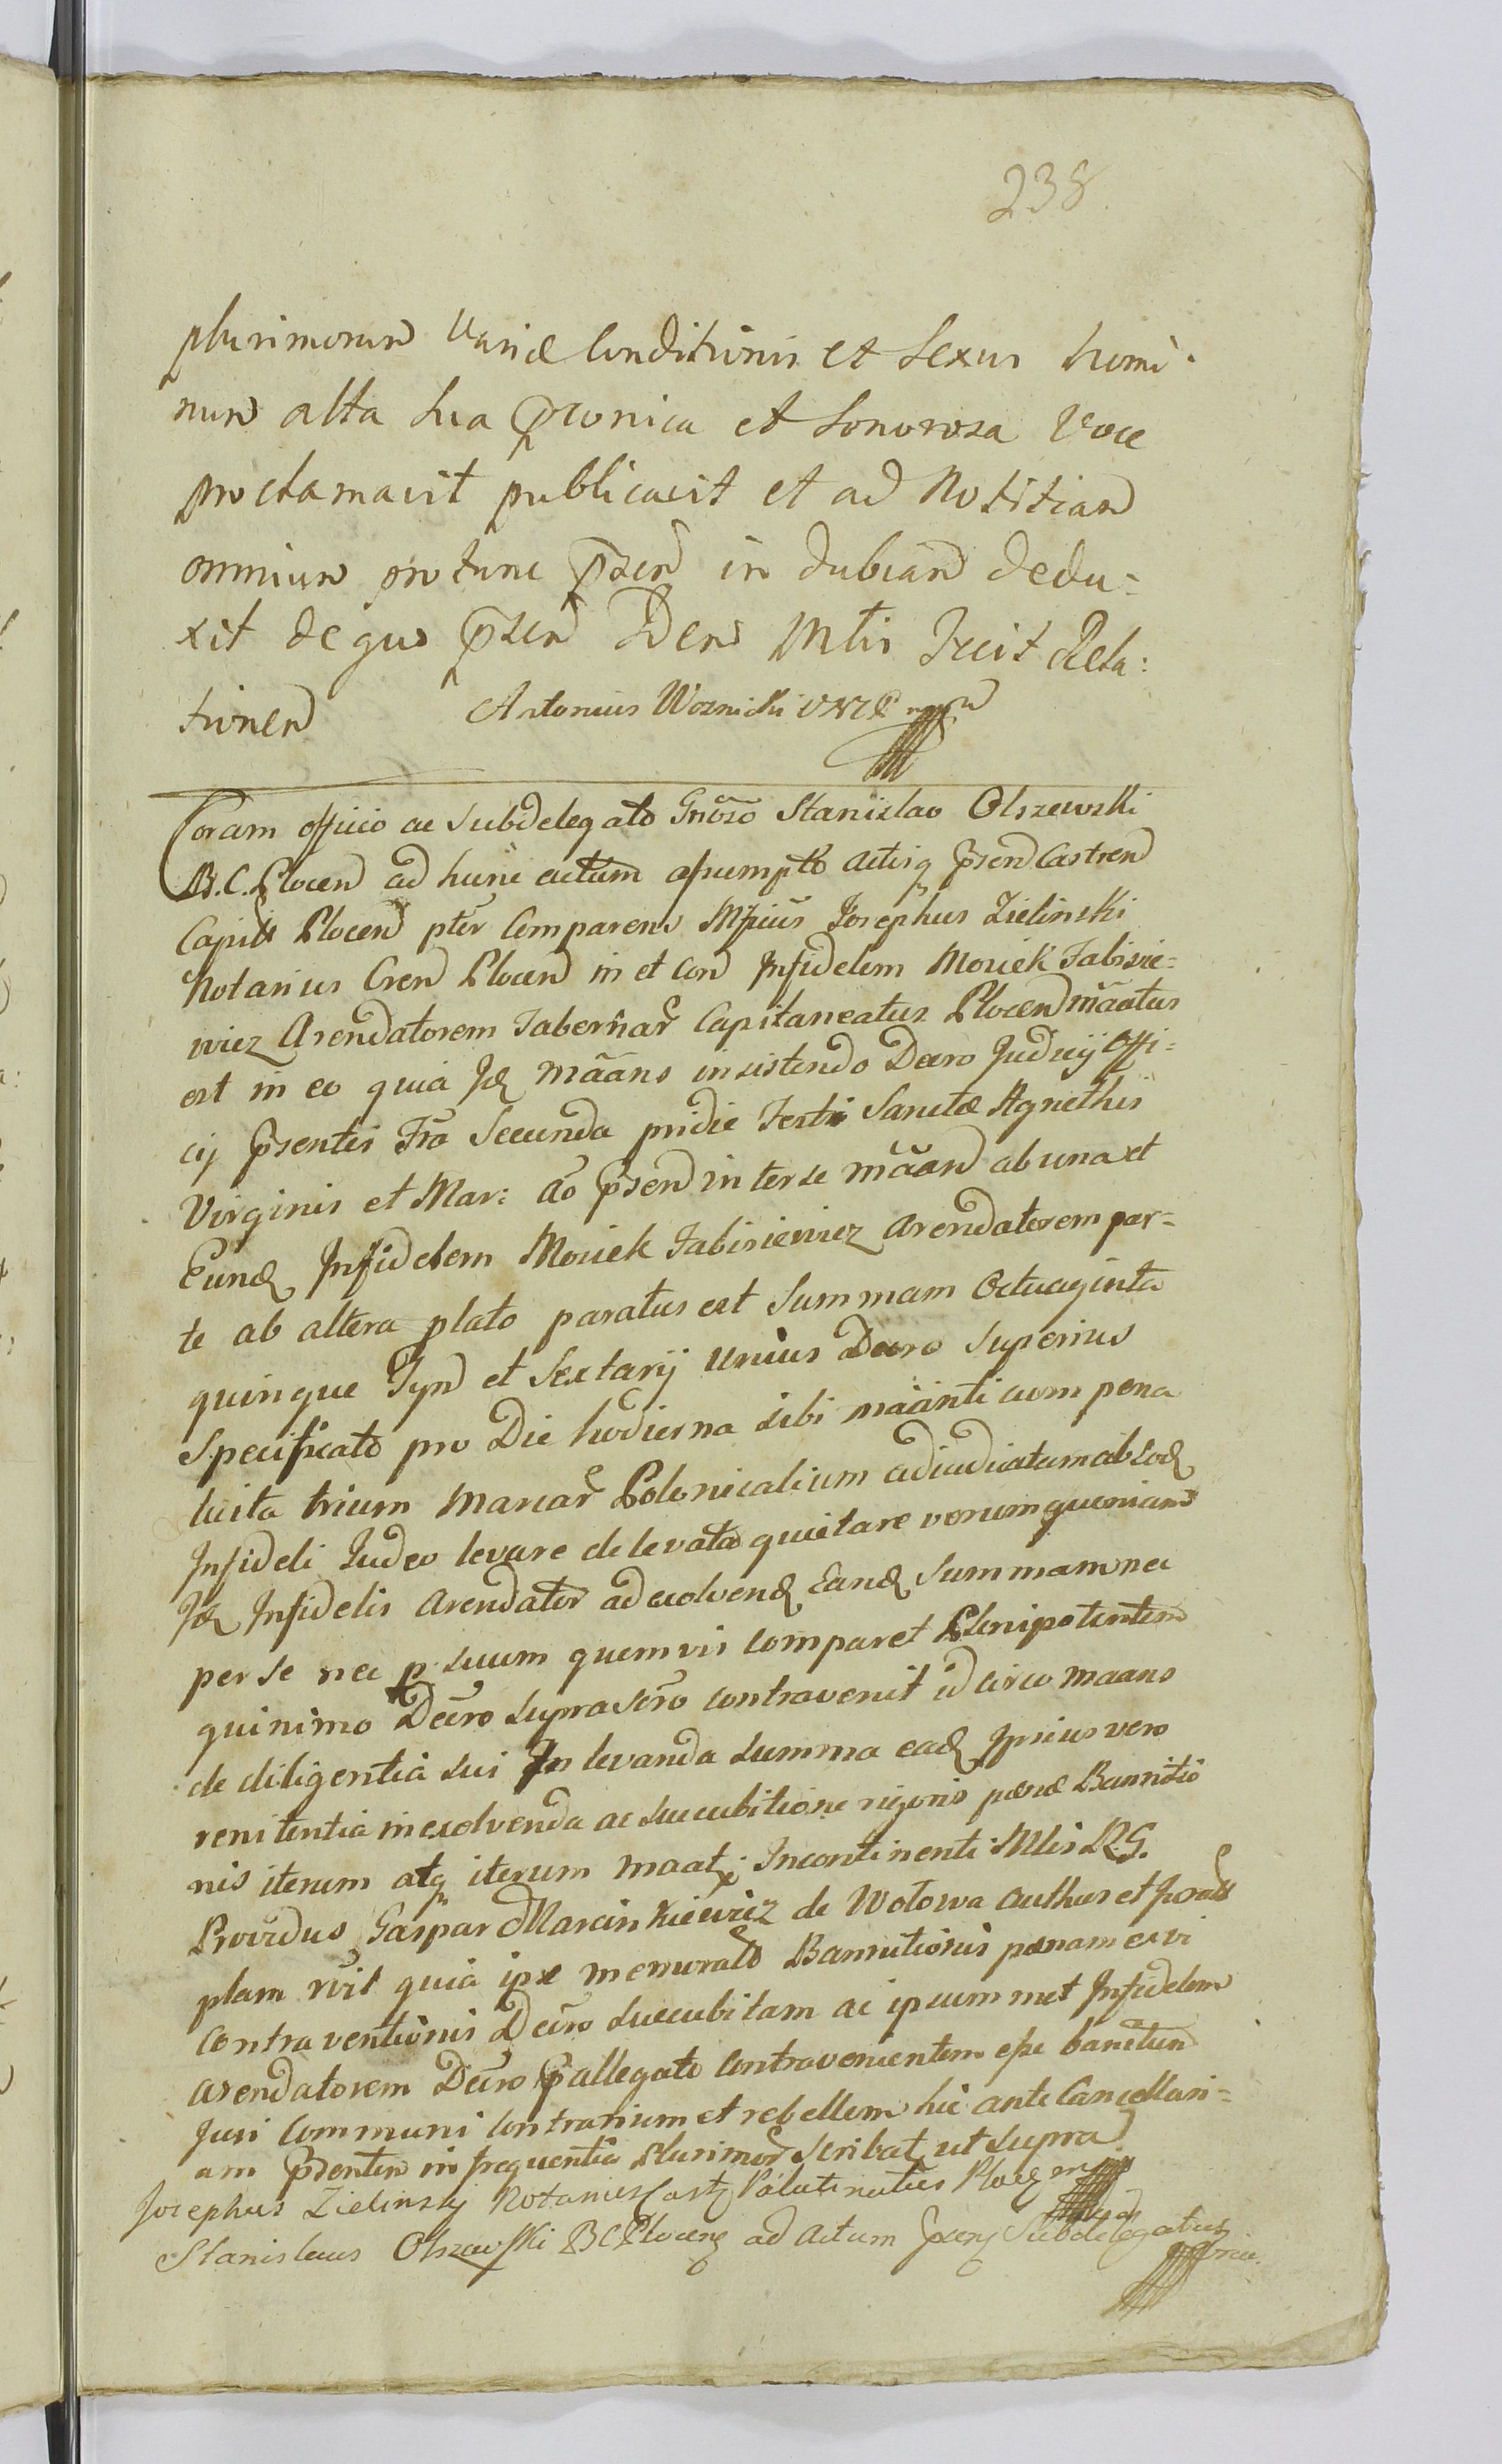 238
plurimorum variæ Conditionis et Sexus homi-
num alta sua pconica et sonorosa Voce
proclamavit publicavit et ad Notitiam
omnium protunc psen indubiam dedu=
xit de quo psen Iden Mtlis fecit Rela:
tionem Antonius Woznicki mpp
Coram officio ac Subdelegato Gnoso Stanislao Olszewski
B. C. Plocen ad hunc actum assumpto actisq psen Castren
Capitt Plocen pter Comparens Mficus Josephus Zielinski
Notarius Cren Plocen in et con Infidelem Moziek Fabisie=
wicz Arendatorem Tabernar Capitaneatus Plocen māatus
est in eo quia Id māans insistendo Decro Judicij Offi=
cij psentis Fra Secunda pridie Festi Sanctæ Agnethis
Virginis et Mar: ao psen inter se māan ab una et
Eund Infidelem Moziek Fabisiewicz Arendatorem par=
te ab altera plato paratus est Summam Octuaginta
quinque Tyn et Sextarij Unius Decro Superius
Specificato pro Die hodierna sibi māanti cum pena
lucita trium Marcar Polonicalium adiudicatam ab Eod
Infideli Judeo levare de levata quietare verum quoniam
Id Infidelis Arendator ad exolvend Eand Summam nec
per se nec p suum quemvis comparet Plenipotentem
quinimo Decro suprascro contravenit idcirco maans
de diligentia sui In levanda summa ead Ipsius vero
renitentia in exolvenda ac succubitione rigoris pœnæ Bannitio
nis iterum atq iterum maat; Incontinenti Mlis R. G.
Providus Gaspar Marcinkiewicz de Wolowa authus et juratt
plam rvit quia ipse memorato Bannitionis pœnam ex vi
contraventionis Decro succubitam ac ipsummet Infidelem
arendatorem Decro pallegato Contravenientem esse banitum
Juri Communi Contrarium et rebellem hic ante Cancellari=
am psentem in frequentia Plurimor Scribat ut supra
Josephus Zielinsky Notarius Cast Palatinatus Ploc mpp
Stanislaus Olszewski BC Plocens ad Actum psens Subdelegatus